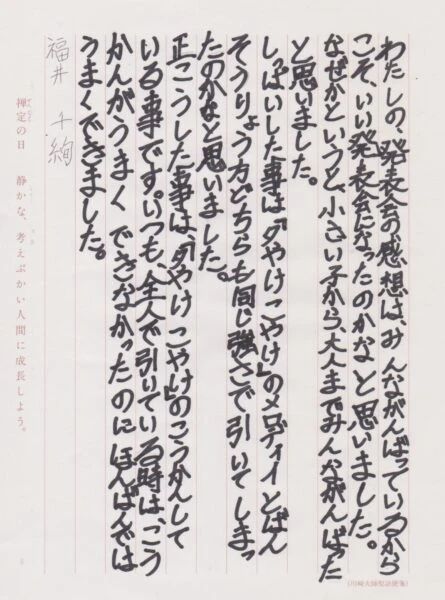 わたしの、発表会の感想は、みんながんばっているから
こそ、いい発表会になったのかなと思いました。
なぜかというと、小さい子から、大人までみんながんばった
と思いました。
しっぱいした事は、「夕やけこやけ」のメロディイとばん
そうりょう方どちらも同じ強さで引いてしまっ
たのかなと思いました。
正こうした事は、「夕やけこやけ」のこうかんして
いる事です。いつも、全人で引いている時は、こう
かんがうまくできなかったのにほんばんでは
うまくできました。
福井 千絢
禅定の日 静かな、考えぶかい人間に成長しよう。
(川崎大師聖語便箋)